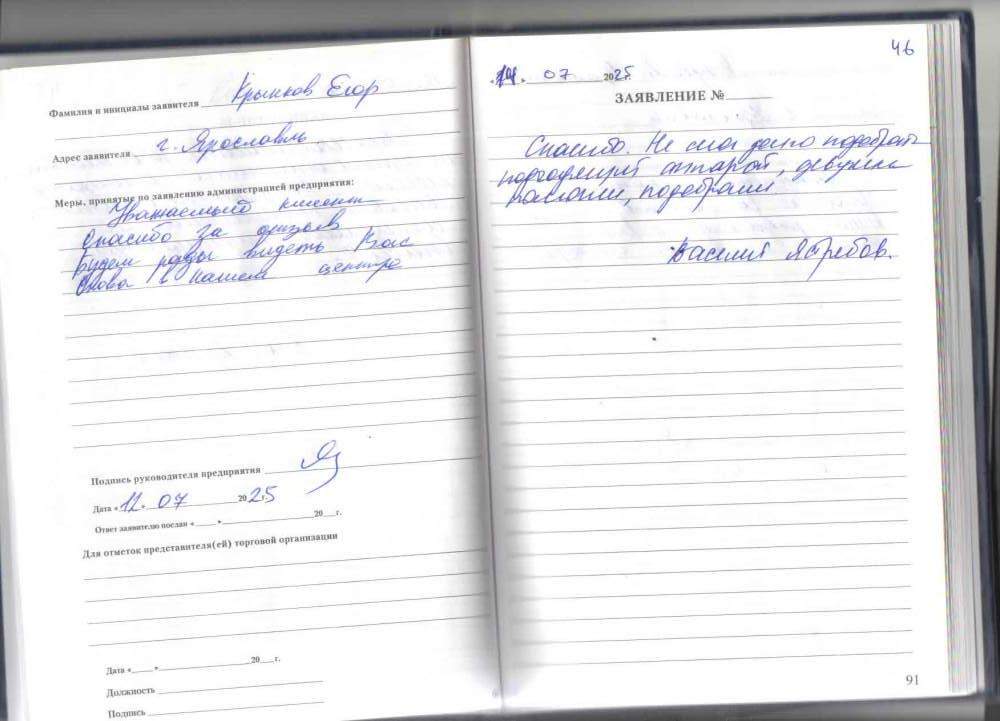 Фамилия и инициалы заявителя Крынков Егор
Адрес заявителя г. Ярославль
Меры, принятые по заявлению администрацией предприятия:
Уважаемый клиент
Спасибо за отзыв
Будем рады видеть Вас
снова в нашем центре
Подпись руководителя предприятия
Дата «12» 07 2025 г.
Ответ заявителю послан «___» 20__г.
Для отметок представителя(ей) торговой организации
Дата «___» 20__г.
Должность
Подпись
46
«14» 07 2025 г.
ЗАЯВЛЕНИЕ №
Спасибо. Не смог долго подобрать
подходящий аппарат, девушки
помогли, подобрали
Василий Ястребов.
91